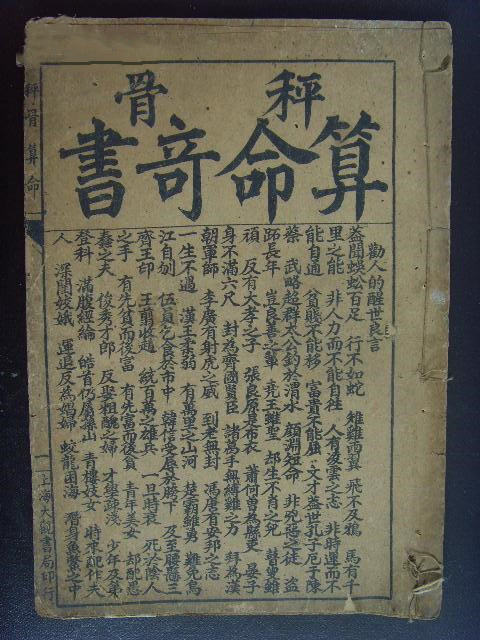 秤骨
算命奇書
勸人的醒世良言
蓋聞蜈蚣百足 行不如蛇 雄雞兩翼 飛不及鴉 馬有千
里之能 非人力而不能自往 人有凌雲之志 非時運而不
能自通 貧賤不能移 富貴不能屈 文才蓋世孔子厄于陳
蔡 武略超群太公釣於渭水 顏淵短命 非兇惡之徒 盜
跖長年 豈良善之輩 堯王雖聖 却生不肖之兒 瞽叟雖
頑 反有大孝之子 張良原是布衣 蕭何曾為縣吏 晏子
身不滿六尺 封為齊國賢臣 諸葛手無縛雞之力 拜為漢
朝軍師 李廣有射虎之威 到老無封 馮唐有安邦之志
一生不遇 漢王柔弱 有萬里之山河 楚霸雖勇 難免烏
江自刎 伍員乞食於市中 韓信受辱於胯下 及至腰懸三
齊王印 王翦收趙 統百萬之雄兵 一旦時衰 死於陰人
之手 有先貧而後富 有先富而後貧 青年美女 却配愚
蠢之夫 俊秀才郎 反娶粗醜之婦 才學疎淺 少年及第
登科 滿腹經綸 皓首仍居深山 青樓妓女 時來配作夫
人 深閨嫦娥 運退反為娼婦 蛟龍困海 潛身魚鱉之中
秤骨算命
上海大觀書局印行